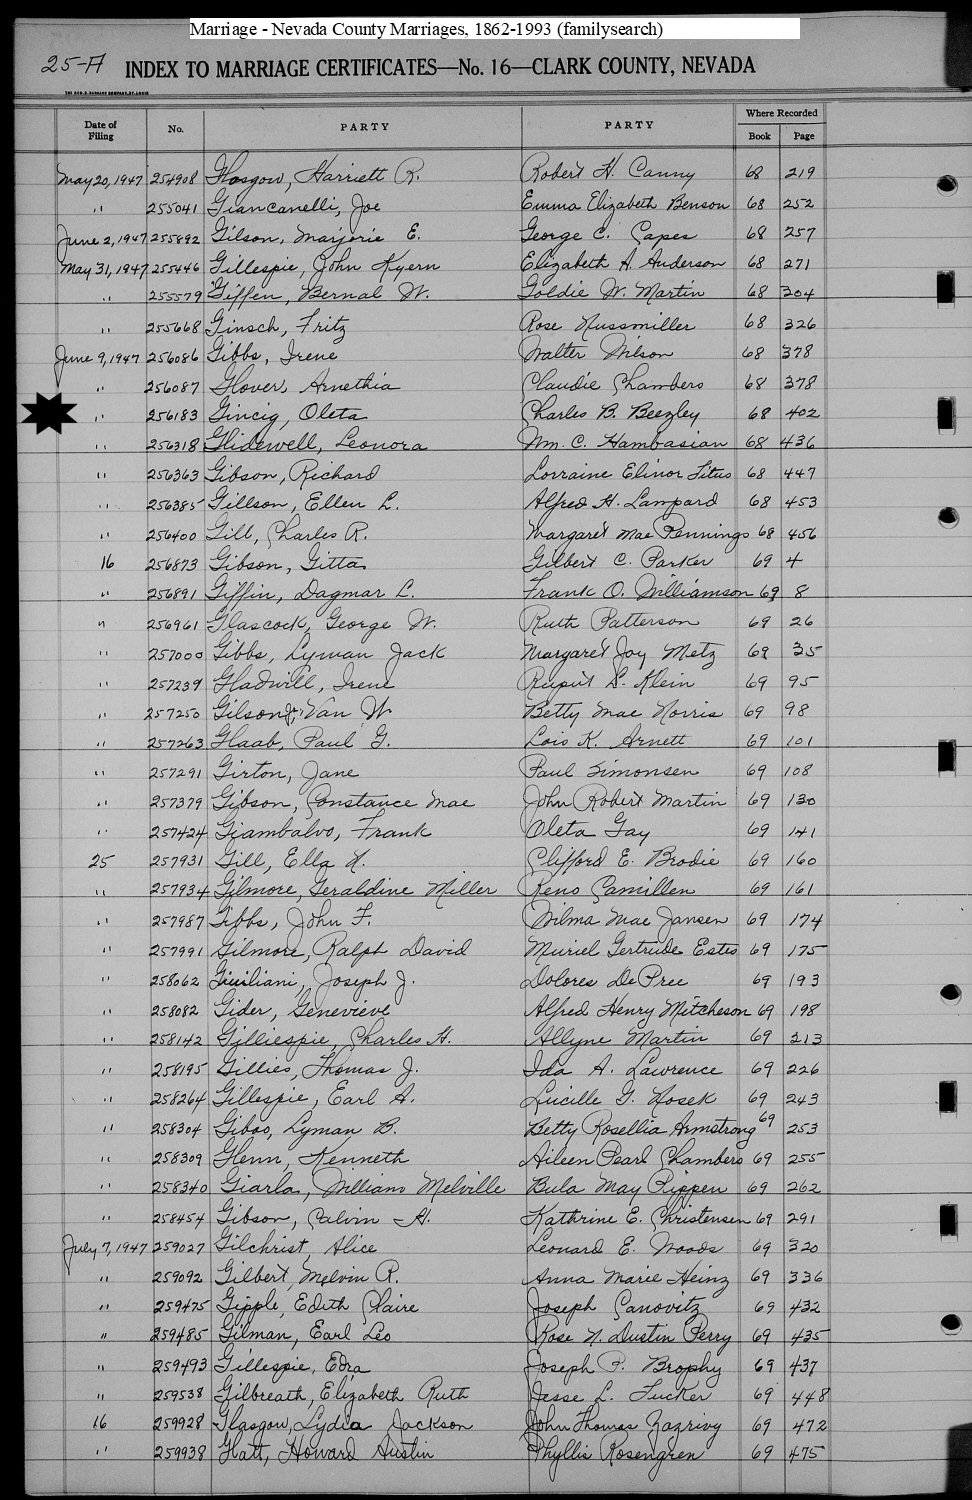 Marriage - Nevada County Marriages, 1862-1993 (familysearch)
25-A INDEX TO MARRIAGE CERTIFICATES—No. 16—CLARK COUNTY, NEVADA
Date of Filing No. PARTY PARTY Where Recorded
Book Page
May 20, 1947 254908 Glasgow, Harriett R. Robert H. Canny 68 219
" 255041 Giancanelli, Joe Emma Elizabeth Benson 68 252
June 2, 1947 255892 Gilson, Marjorie E. George C. Capes 68 257
May 31, 1947 255446 Gillespie, John Kyern Elizabeth A. Anderson 68 271
" 255579 Giffen, Bernal W. Goldie W. Martin 68 304
" 255668 Ginsch, Fritz Rose Nussmiller 68 326
June 9, 1947 256086 Gibbs, Irene Walter Wilson 68 378
" 256087 Glover, Arnethia Claudie Chambers 68 378
" 256183 Gincig, Oleta Charles B. Beezley 68 402
" 256318 Glidewell, Leonora Wm. C. Hambasian 68 436
" 256363 Gibson, Richard Lorraine Elinor Titus 68 447
" 256385 Gillson, Ellen L. Alfred H. Lampard 68 453
" 256400 Gill, Charles R. Margaret Mae Pennings 68 456
16 256873 Gibson, Gitta Gilbert C. Parker 69 4
" 256891 Giffin, Dagmar L. Frank O. Williamson 69 8
" 256961 Glascock, George W. Ruth Patterson 69 26
" 257000 Gibbs, Lyman Jack Margaret Joy Metz 69 35
" 257239 Gladwill, Irene Rupert L. Klein 69 95
" 257250 Gilson Jr, Van W Betty Mae Norris 69 98
" 257263 Glaab, Paul G. Lois K. Arnett 69 101
" 257291 Girton, Jane Paul Simonsen 69 108
" 257379 Gibson, Constance Mae John Robert Martin 69 130
" 257424 Giambalvo, Frank Oleta Gay 69 141
25 257931 Gill, Ella N. Clifford E. Brodie 69 160
" 257934 Gilmore, Geraldine Miller Reno Camillen 69 161
" 257987 Gibbs, John F. Wilma Mae Jansen 69 174
" 257991 Gilmore, Ralph David Muriel Gertrude Estes 69 175
" 258062 Giuiliani, Joseph J. Dolores DePree 69 193
" 258082 Gider, Genevieve Alfred Henry Mitcheson 69 198
" 258142 Gilliespie, Charles H. Allyne Martin 69 213
" 258195 Gillies, Thomas J. Ida A. Lawrence 69 226
" 258264 Gillespie, Earl A. Lucille G. Nosek 69 243
" 258304 Giboo, Lyman B. Betty Rosellia Armstrong 69 253
" 258309 Glenn, Kenneth Aileen Pearl Chambers 69 255
" 258340 Giarla, William Melville Bula May Rippen 69 262
" 258454 Gibson, Calvin H. Kathrine E. Christensen 69 291
July 7, 1947 259027 Gilchrist, Alice Leonard E. Woods 69 320
" 259092 Gilbert, Melvin R. Anna Marie Heinz 69 336
" 259475 Gipple, Edith Claire Joseph Canovitz 69 432
" 259485 Gilman, Earl Leo Rose N. Dustin Perry 69 435
" 259493 Gillespie, Edra Joseph P. Brophy 69 437
" 259538 Gilbreath, Elizabeth Ruth Jesse L. Tucker 69 448
16 259928 Glasgow, Lydia Jackson John Thomas Zazrivy 69 472
" 259938 Glatt, Howard Austin Phyllis Rosengren 69 475